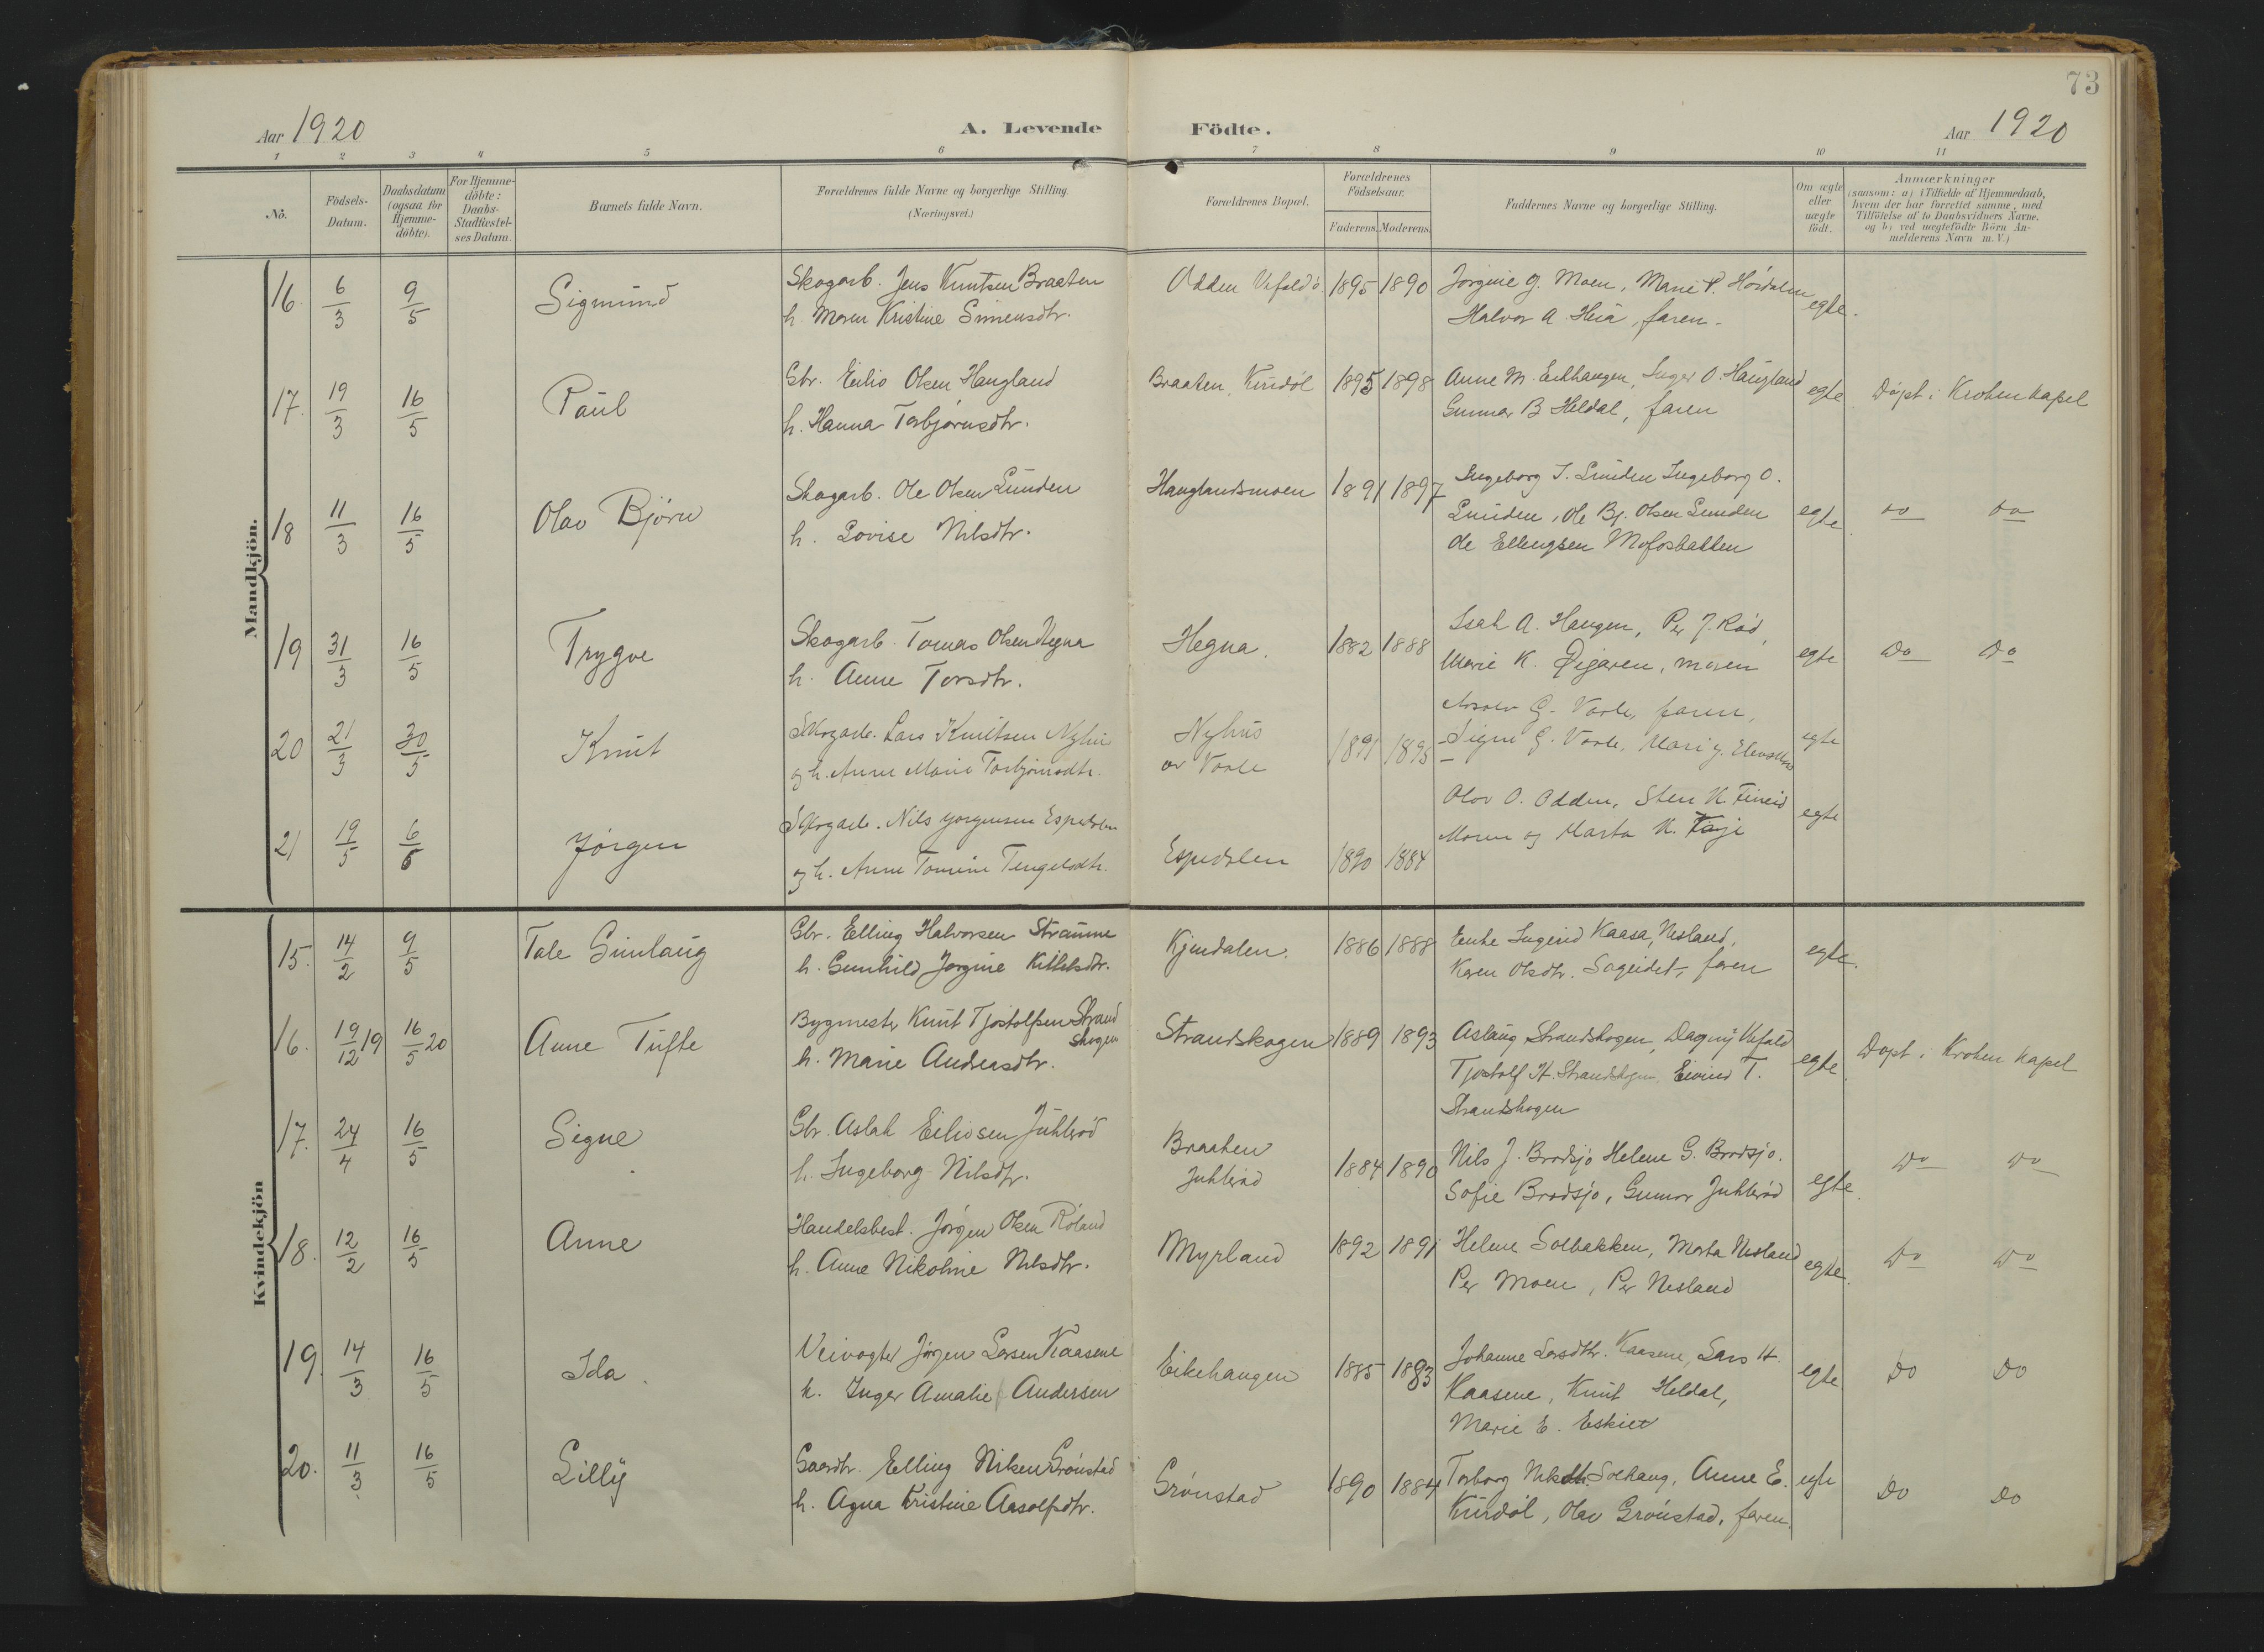 73
Aar 1920
A. Levende Födte.
Aar 1920
1 2 3 4 5 6 7 8 9 10 11
No.
Födsels-Datum.
Daabsdatum (ogsaa for Hjemme-döbte).
For Hjemme-döbte: Daabs-Stadfæstel-ses Datum.
Barnets fulde Navn.
Forældrenes fulde Navne og borgerlige Stilling. (Næringsvei.)
Forældrenes Bopæl.
Forældrenes Födselsaar.
Faderens. Moderens.
Faddernes Navne og borgerlige Stilling.
Om ægte eller uægte födt.
Anmærkninger (saasom: a) i Tilfælde af Hjemmedaab, hvem der har forrettet samme, med Tilföielse af to Daabsvidners Navne. og b) ved uægtefödte Börn An-melderens Navn m. V.)
Mandkjön.
16. 6/3 9/5 Sigmund Skogarb. Jens Knutsen Braaten Odden Vefald 1895 1890 Jørgine G. Moen, Marie P. Hørdalen egte.
h. Maren Kristine Simensdtr. Halvor A. Heia, faren.
17. 19/3 16/5 Paul Gbr. Eilio Olsen Haugland Braaten, Kirdøl 1895 1898 Anne M. Eikhaugen, Inger O. Haugland egte. Døpt i Kroken kapel
h. Hanna Torbjørnsdtr. Gunnar B Heldal, faren
18 11/3 16/5 Olav Bjørn Skogarb. Ole Olsen Lunden Hauglandsmoen 1891 1897 Ingeborg J. Lunden Ingeborg O. egte. do do
h. Lovise Nilsdtr. Lunden, Ole Bj. Olsen Lunden
Ole Ellingsen Mofosbakken
19 31/3 16/5 Trygve Skogarb. Tomas Olsen Hegna Hegna. 1882 1888 Isak A. Haugen, Per J. Rød, egte do do
h. Anne Torsdtr. Marie K. Øigaren, moren
20 21/3 30/5 Knut Skogarb. Lars Knutsen Nyhus Nyhus 1891 1895 G. Voole, faren, egte
og h. Anne Marie Torbjørnsdtr. av Voole Signe G. Voole, Mari G.
21 19/5 6/6 Jørgen Skogarb. Nils Jørgensen Espedalen Espedalen 1890 1884 Olav O. Odden, Sten K. egte
og h. Anne Tomine Tengelsdtr. Moren og Marta K.
Kvindekjön
15. 14/2 9/5 Tale Gunlaug Gbr. Elling Halvorsen Straume Kjendalen. 1886 1888 Enke Ingerid Kaasa, Nesland, egte.
h. Gunhild Jørgine Kittilsdtr. Karen Olsdtr. Sageidet, faren
16. 19/12 19 16/5 20 Anne Tufte Bygmester Knut Tjostolfsen Strandskogen Strandskogen 1889 1893 Aslaug Strandskogen, Dagny Vefald egte. Døpt i Kroken kapel
h. Marie Andreasdtr. Tjostolf H. Strandskogen, Eivind T.
Strandskogen
17. 24/4 16/5 Signe Gbr. Aslak Eiliosen Juklerød Braaten 1884 1890 Nils J. Brødsjø Helene G. Brødsjø. egte. do do
h. Ingeborg Nilsdtr. Juklerød Sofie Brødsjø, Gunnar Juklerød
18. 12/2 16/5 Anne Handelsbest. Jørgen Olsen Røland Myrland 1892 1891 Helene Solbakken, Marta Nesland egte. do do
h. Anne Nikoline Nilsdtr. Per Moen, Per Nesland
19. 14/3 16/5 Ida. Veivogter Jørgen Larsen Kaasene Eikehaugen 1885 1883 Johanne Larsdtr. Kaasene, Lars H. egte. Do Do
h. Inger Amalie Andersen Kaasene, Knut Heldal,
Marie E.
20. 11/3 16/5 Lilly Gaardbr. Elling Nilsen Grønstad Grønstad 1890 1884 Torborg Solhaug, Anne E. egte Do Do
h. Agna Kristine Aasolfsdtr. Kirdøl, Olav Grønstad, faren.